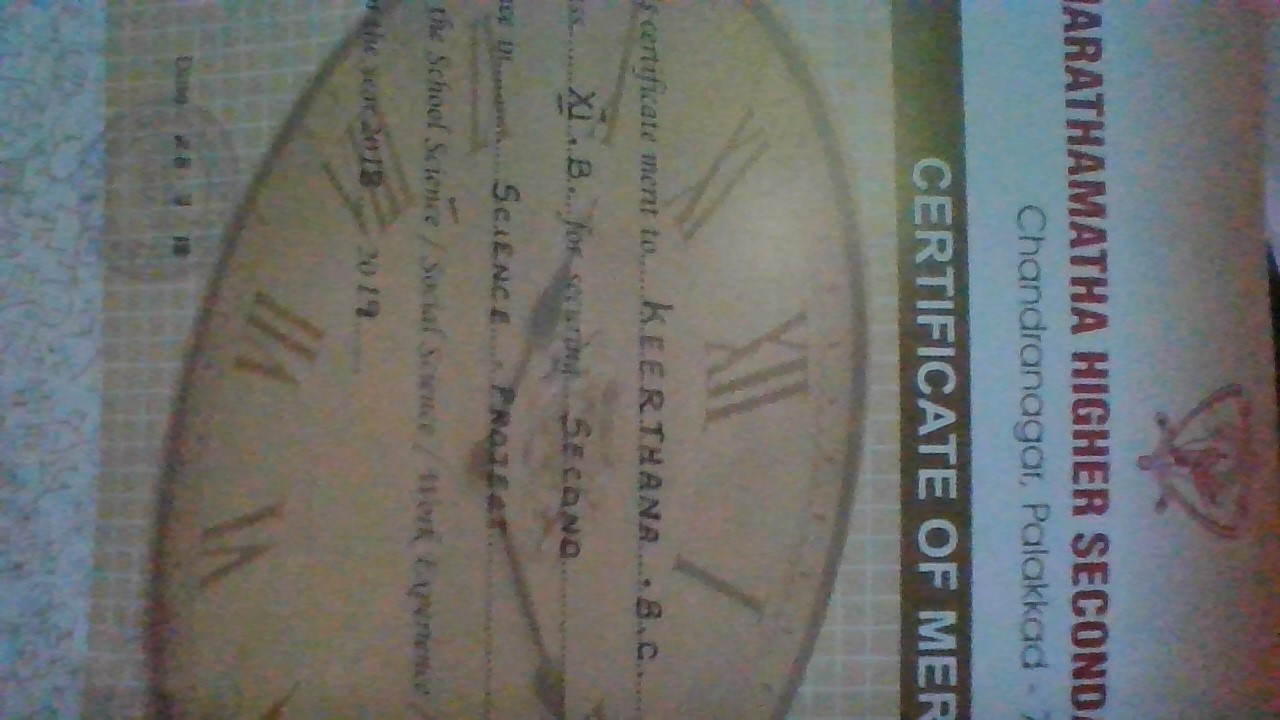 ARATHAMATHA HIGHER SECONDA
Chandranagar, Palakkad -
CERTIFICATE OF MER
s certificate merit to....KEERTHANA...B.C....
ss.......XI..B....for securing...SECOND
SCIENCE...PROJECT
the School Science / Social Science / Work Experience /
or the year 2018 2019
Date
XII I